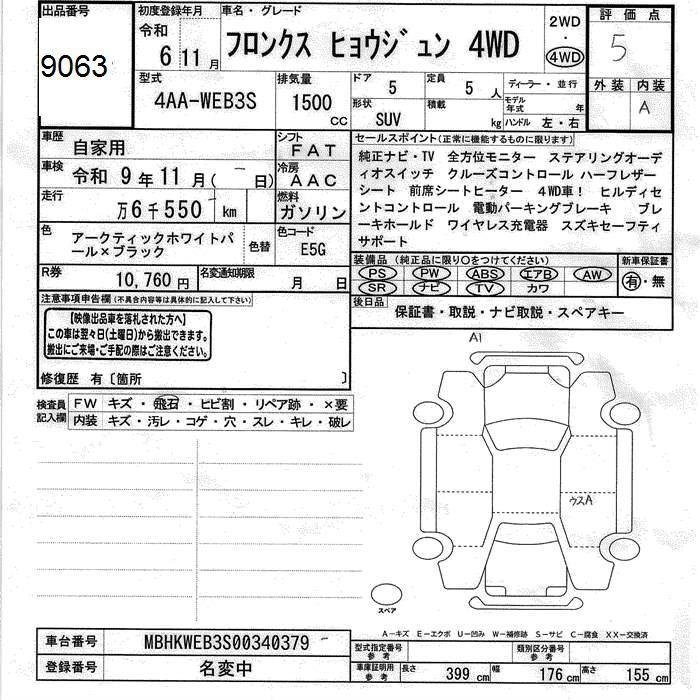 出品番号
9063
初度登録年月
令和
6年11月
車名・グレード
フロンクス ヒョウジュン 4WD
2WD
・
4WD
評価点
5
外装 内装
A
型式
4AA-WEB3S
排気量
1500
CC
ドア
5
定員
5人
形状
SUV
積載
kg
ディーラー・並行
モデル年式
年
ハンドル 左・右
車歴
自家用
シフト
FAT
車検
令和 9年11月(-日)
冷房
AAC
走行
万6千550km
燃料
ガソリン
色
アークティックホワイトパ
ール×ブラック
色替
色コード
E5G
R券
10,760円
名変通知期限
月 日
セールスポイント(正常に機能するものに限ります)
純正ナビ・TV 全方位モニター ステアリングオーデ
ィオスイッチ クルーズコントロール ハーフレザー
シート 前席シートヒーター 4WD車! ヒルディセ
ントコントロール 電動パーキングブレーキ ブレ
ーキホールド ワイヤレス充電器 スズキセーフティ
サポート
装備品(純正品に限り○をつけてください)
PS PW ABS エアB AW
SR ナビ TV カワ
新車保証書
有・無
後日品
保証書・取説・ナビ取説・スペアキー
注意事項申告欄(不具合内容等は具体的に記入して下さい)
【映像出品車を落札された方へ】
この車は翌々日(土曜日)から搬出できます。
搬出にご来場・ご手配の際はご注意ください。
修復歴 有〔箇所 〕
検査員
記入欄
FW キズ・飛石・ヒビ割・リペア跡・×要
内装 キズ・汚レ・コゲ・穴・スレ・キレ・破レ
A1
ウスA
スペア
A−キズ E−エクボ U−凹み W−補修跡 S−サビ C−腐食 XX−交換済
車台番号
MBHKWEB3S00340379
登録番号
名変中
型式指定番号
参考
類別区分番号
参考
車庫証明用
参考
長さ 399cm 幅 176cm 高さ 155cm